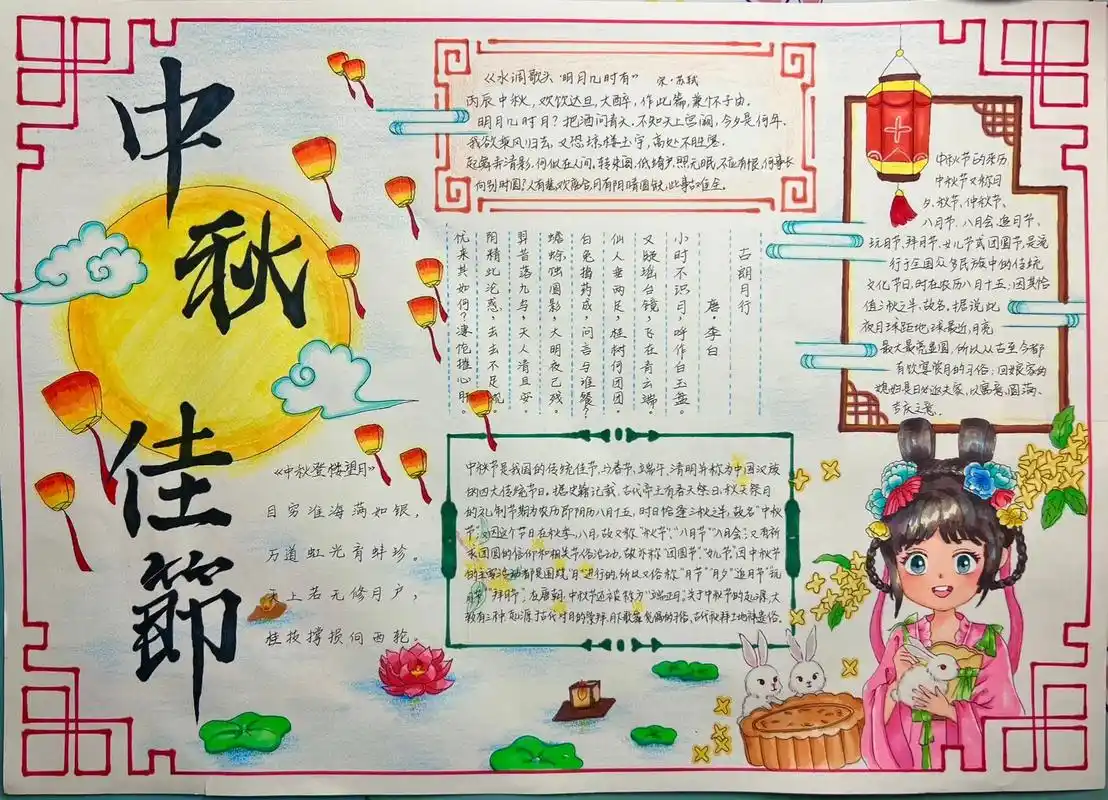 中秋佳節
《水调歌头·明月几时有》 宋·苏轼
丙辰中秋，欢饮达旦，大醉，作此篇，兼怀子由。
明月几时月？把酒问青天。不知天上宫阙，今夕是何年。
我欲乘风归去，又恐琼楼玉宇，高处不胜寒。
起舞弄清影，何似在人间。转朱阁，低绮户，照无眠。不应有恨，何事长
向别时圆？人有悲欢离合，月有阴晴圆缺，此事古难全。
古朗月行
唐 李白
小时不识月，呼作白玉盘。
又疑瑶台镜，飞在青云端。
仙人垂两足，桂树何团团。
白兔捣药成，问言与谁餐？
蟾蜍蚀圆影，大明夜已残。
羿昔落九乌，天人清且安。
阴精此沦惑，去去不足观。
忧来其如何？凄怆摧心肝。
中秋节的来历
中秋节又称月
夕、秋节、仲秋节、
八月节、八月会、追月节、
玩月节、拜月节、女儿节或团圆节，是流
行于全国众多民族中的传统
文化节日，时在农历八月十五；因其恰
值三秋之半，故名，据说此
夜月球距地球最近，月亮
最大最亮最圆，所以从古至今都
有饮宴赏月的习俗；回娘家的
媳妇是日必返夫家，以寓意圆满、
吉庆之意。
《中秋登楼望月》
目穷淮海满如银，
万道虹光育蚌珍。
天上若无修月户，
桂枝撑损向西轮。
中秋节是我国的传统佳节，与春节、端午、清明并称为中国汉族
的四大传统节日。据史籍记载，古代帝王有春天祭日、秋天祭月
的礼制节期为农历即阴历八月十五，时日恰逢三秋之半，故名"中秋
节"；又因这个节日在秋季、八月，故又称"秋节"、"八月节"、"八月会"；又有祈
求团圆的信仰和相关节俗活动，故亦称"团圆节"、"女儿节"。因中秋节
的主要活动都是围绕"月"进行的，所以又俗称"月节""月夕""追月节""玩
月节""拜月节"，在唐朝，中秋节还被称为"端正月"。关于中秋节的起源，大
致有三种：起源于古代对月的崇拜、月下歌舞觅偶的习俗，古代秋报拜土地神遗俗。